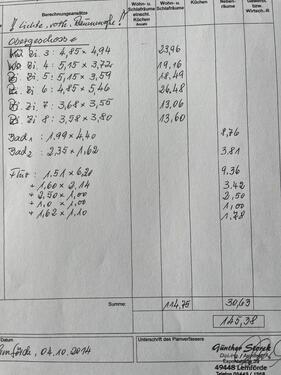 Berechnungsansätze
Wohn- u. Schlafräume einschl. Küchen
Wohn- u. Schlafräume
Küchen
Neben- räume
Wirtsch.-R.
Obergeschoss
Zi. 3 : 4,85 x 4,94 23,96
Zi. 4 : 5,15 x 3,72 19,16
Zi. 5 : 5,15 x 3,59 18,49
Zi. 6 : 4,85 x 5,46 26,48
Zi. 7 : 3,68 x 3,55 13,06
Zi. 8 : 3,58 x 3,80 13,60
Bad 1 : 1.99 x 4,40 8,76
Bad 2 : 2,35 x 1,62 3,81
Flur : 1.51 x 6,20 9,36
+ 1,60 x 2,14 3,42
+ 2,50 x 1,00 2,50
+ 1,0 x 1,00 1,00
+ 1,62 x 1,10 1,78
Summe: 114,75 30,63
145,38
Datum
Unterschrift des Planverfassers
04.10.2014
Günther Storck
49448 Lemförde